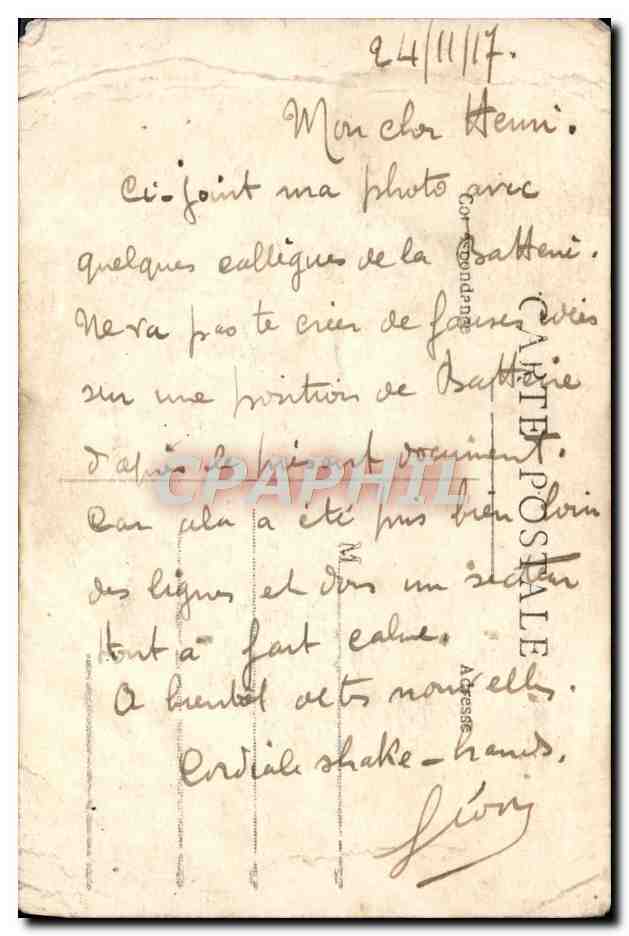 24/11/17.
Mon cher Henri.
Ci-joint ma photo avec
quelques collègues de la Batterie.
Ne va pas te créer de fausses idées
sur une position de Batterie
d'après le présent document.
Car cela a été pris bien loin
des lignes et dans un secteur
tout à fait calme.
A bientôt de tes nouvelles.
Cordiale shake-hands.
CARTE POSTALE
Correspondance
Adresse
M
CPAPHIL